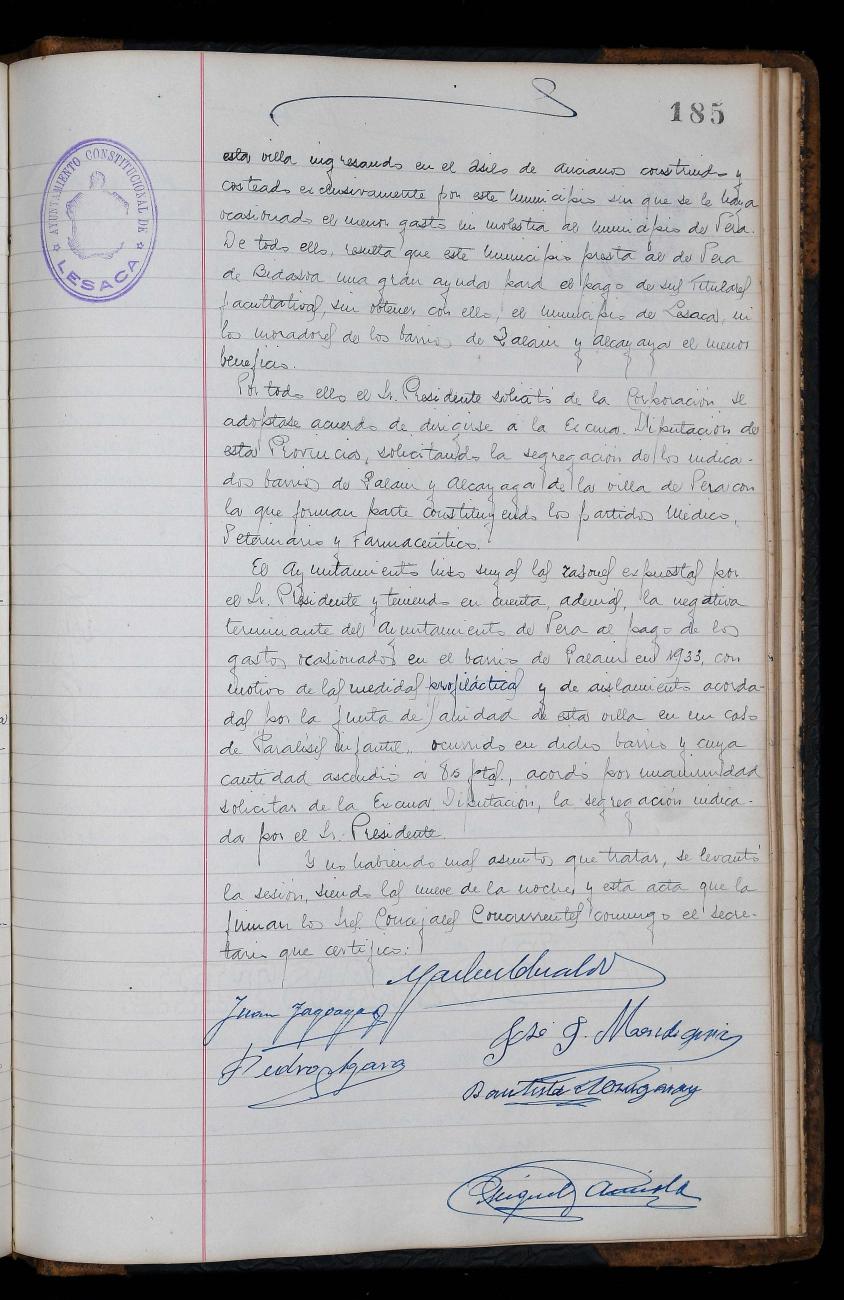 185
AYUNTAMIENTO CONSTITUCIONAL DE
LESACA
esta villa ingresando en el Asilo de ancianos construido y
costeado exclusivamente por este Municipio sin que se le haya
ocasionado el menor gasto ni molestia al Municipio de Vera.
De todo ello, resulta que este Municipio presta al de Vera
de Bidasoa una gran ayuda para el pago de sus Titulares
facultativos, sin obtener con ello, el municipio de Lesaca, ni
los moradores de los barrios de Zalain y Alcayaga el menor
beneficio.
Por todo ello el Sr. Presidente solicitó de la Corporación se
adoptase acuerdo de dirigirse a la Excma. Diputación de
esta Provincia, solicitando la segregación de los indica-
dos barrios de Zalain y Alcayaga de la villa de Vera con
la que forman parte constituyendo los partidos Médico,
Veterinario y Farmacéutico.
El Ayuntamiento hizo suyas las razones expuestas por
el Sr. Presidente y teniendo en cuenta, además, la negativa
terminante del Ayuntamiento de Vera al pago de los
gastos ocasionados en el barrio de Zalain en 1933, con
motivo de las medidas profilácticas y de aislamiento acorda-
das por la Junta de Sanidad de esta villa en un caso
de Paralisis infantil, ocurrido en dicho barrio y cuya
cantidad ascendió a ptas., acordó por unanimidad
solicitar de la Excma Diputación, la segregación indica-
da por el Sr. Presidente.
Y no habiendo mas asuntos que tratar, se levantó
la sesión, siendo las nueve de la noche, y esta acta que la
firman los Sres. Concejales Concurrentes conmigo el secre-
tario que certifico:
Juan Jagoaga
José J. Mendiguia
Pedro
Bautista
Miguel